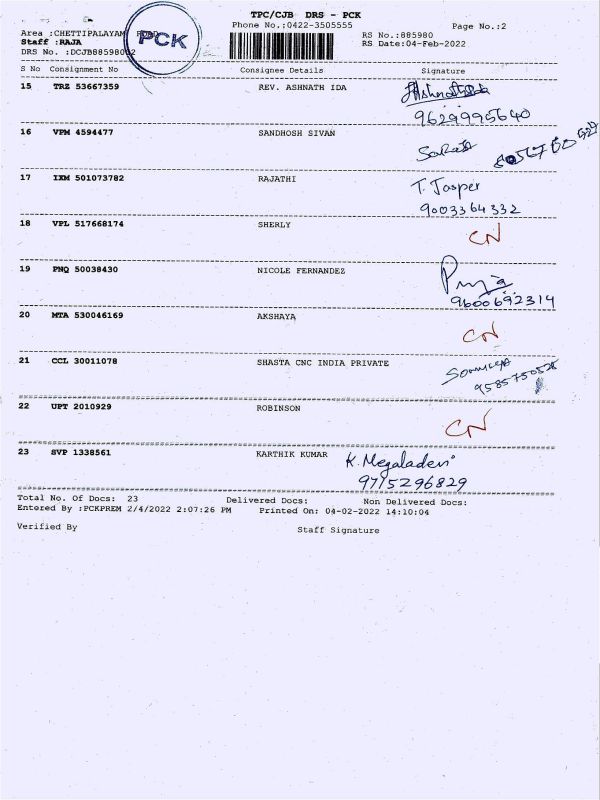 TPC/CJB DRS - PCK
Phone No.:0422-3505555 Page No.:2
Area :CHETTIPALAYAM RS No.:885980
Staff :RAJA RS Date:04-Feb-2022
DRS No. :DCJB88598002
PCK
S No Consignment No Consignee Details Signature
15 TRZ 53667359 REV. ASHNATH IDA
9629995640
16 VPM 4594477 SANDHOSH SIVAN
17 IXM 501073782 RAJATHI T. Jasper
9003364332
18 VPL 517668174 SHERLY CN
19 PNQ 50038430 NICOLE FERNANDEZ
9600692314
20 MTA 530046169 AKSHAYA CN
21 CCL 30011078 SHASTA CNC INDIA PRIVATE
22 UPT 2010929 ROBINSON CN
23 SVP 1338561 KARTHIK KUMAR K. Megaladevi
9715296829
Total No. Of Docs: 23 Delivered Docs: Non Delivered Docs:
Entered By :PCKPREM 2/4/2022 2:07:26 PM Printed On: 04-02-2022 14:10:04
Verified By Staff Signature